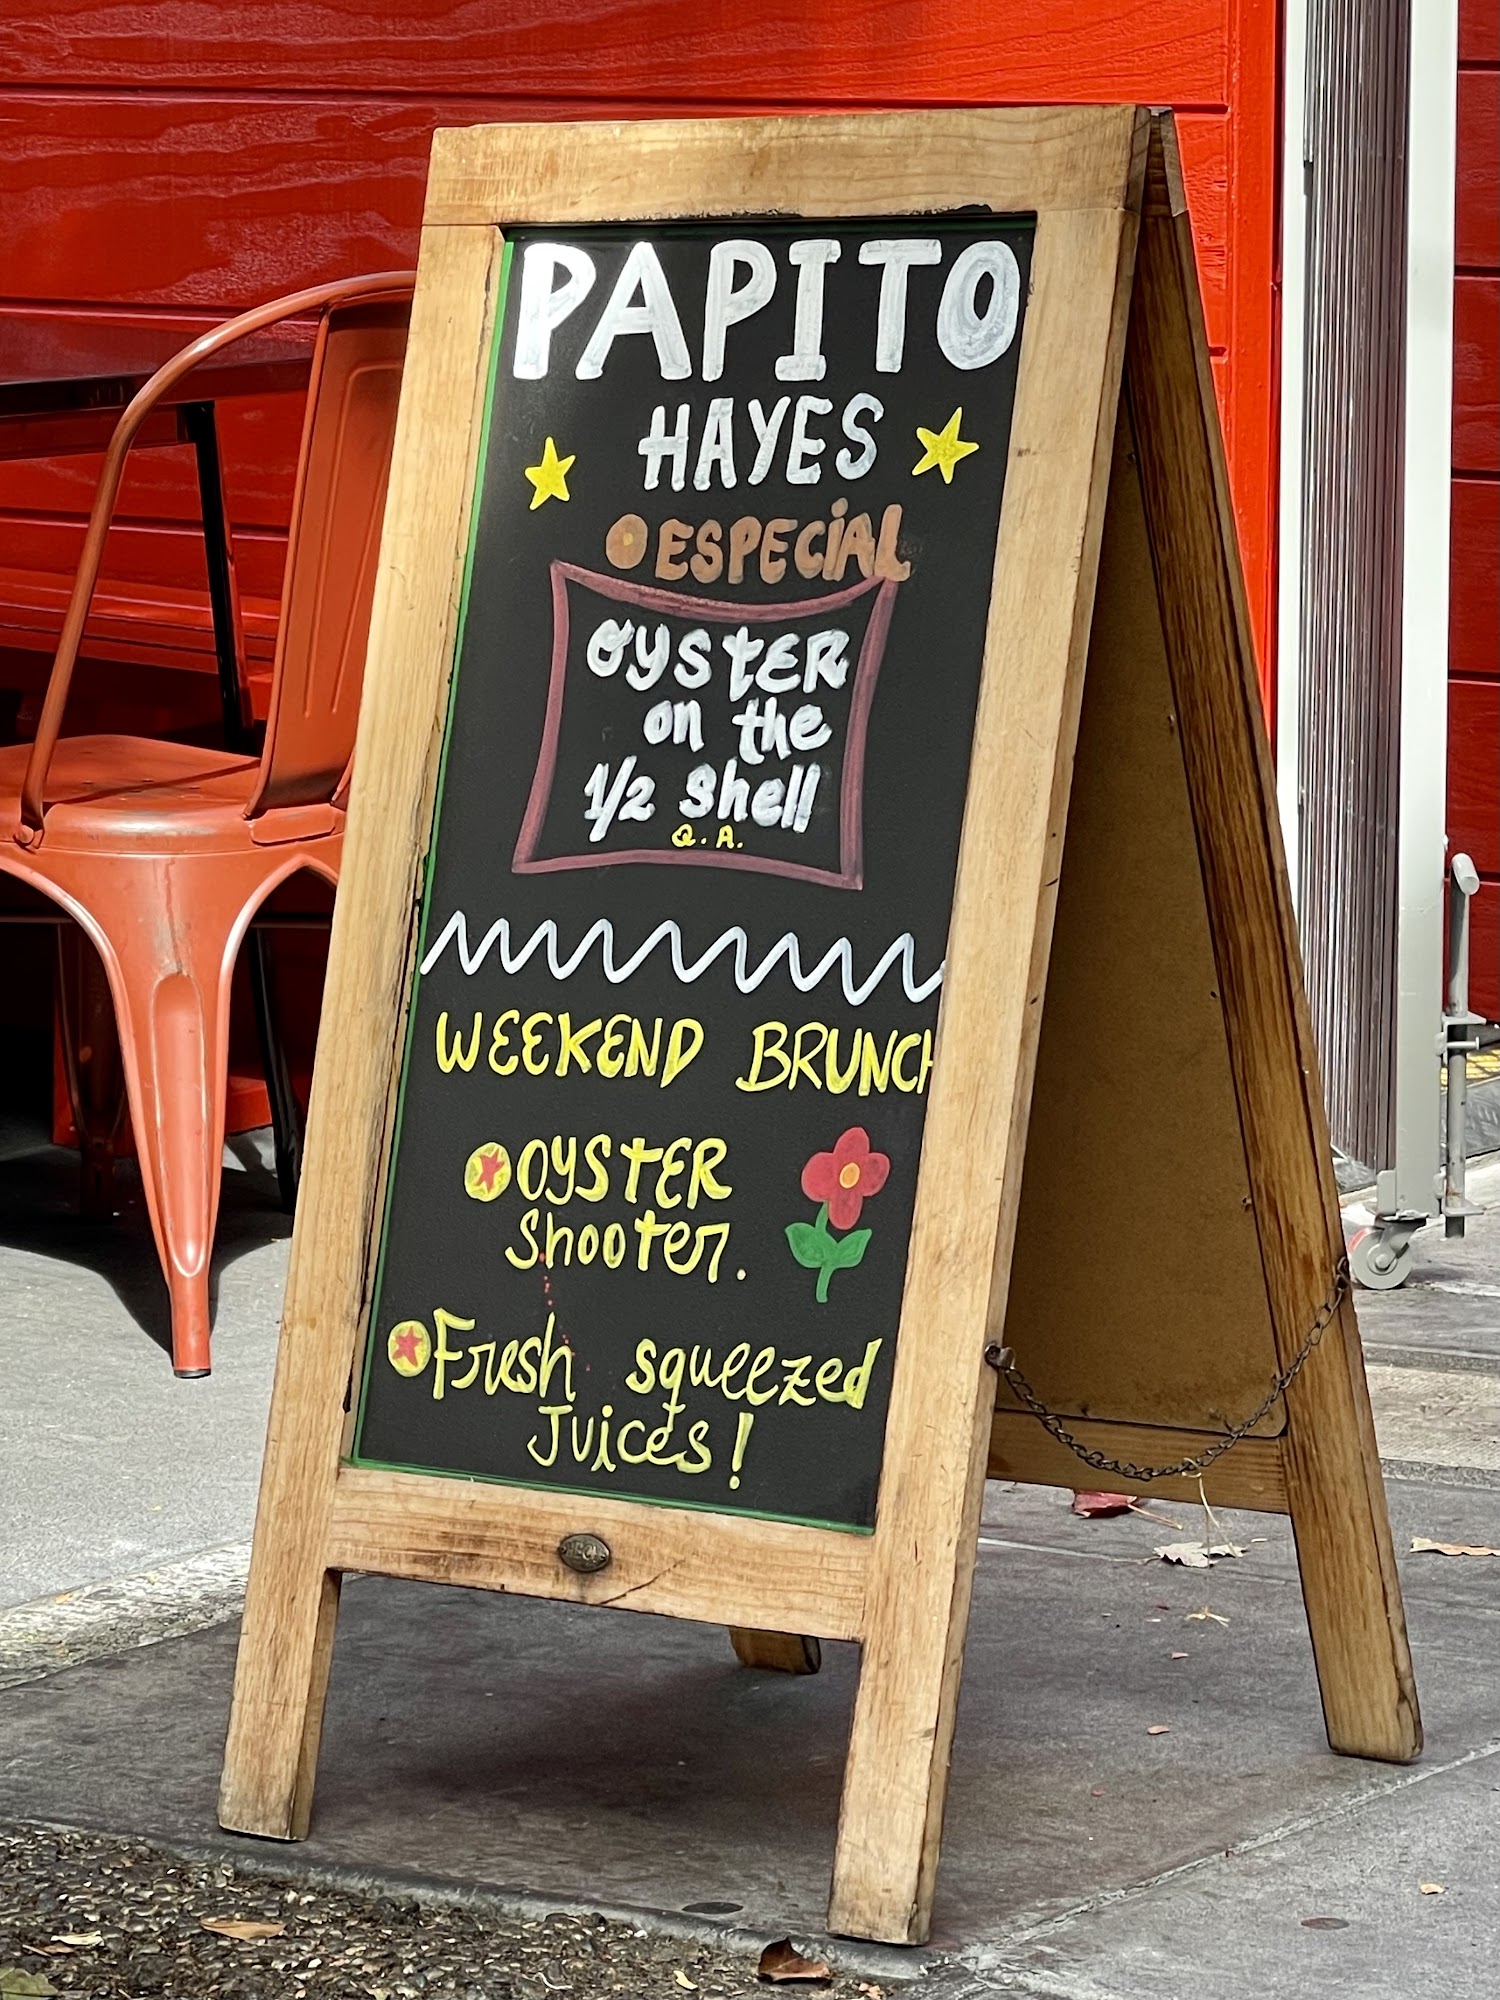 PAPITO
HAYES
ESPECIAL
OYSTER
on the
1/2 shell
Q.A.
WEEKEND BRUNCH
OYSTER
shooter.
Fresh squeezed
Juices!